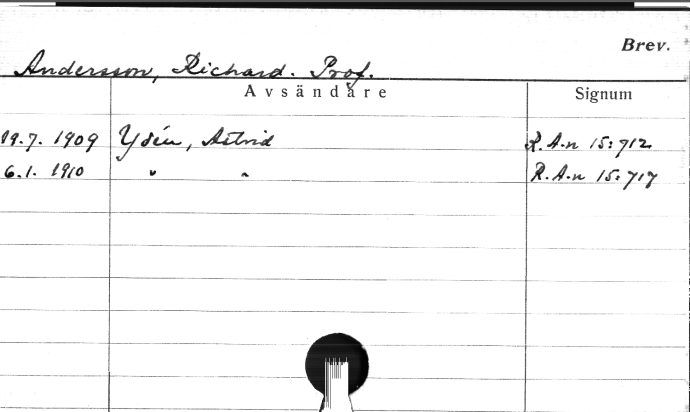 Brev.
Andersson, Richard. Prof.
Avsändare Signum
19.7. 1909 Ydén, Astrid R.A.n 15:712
6.1. 1910 " " R.A.n 15:717